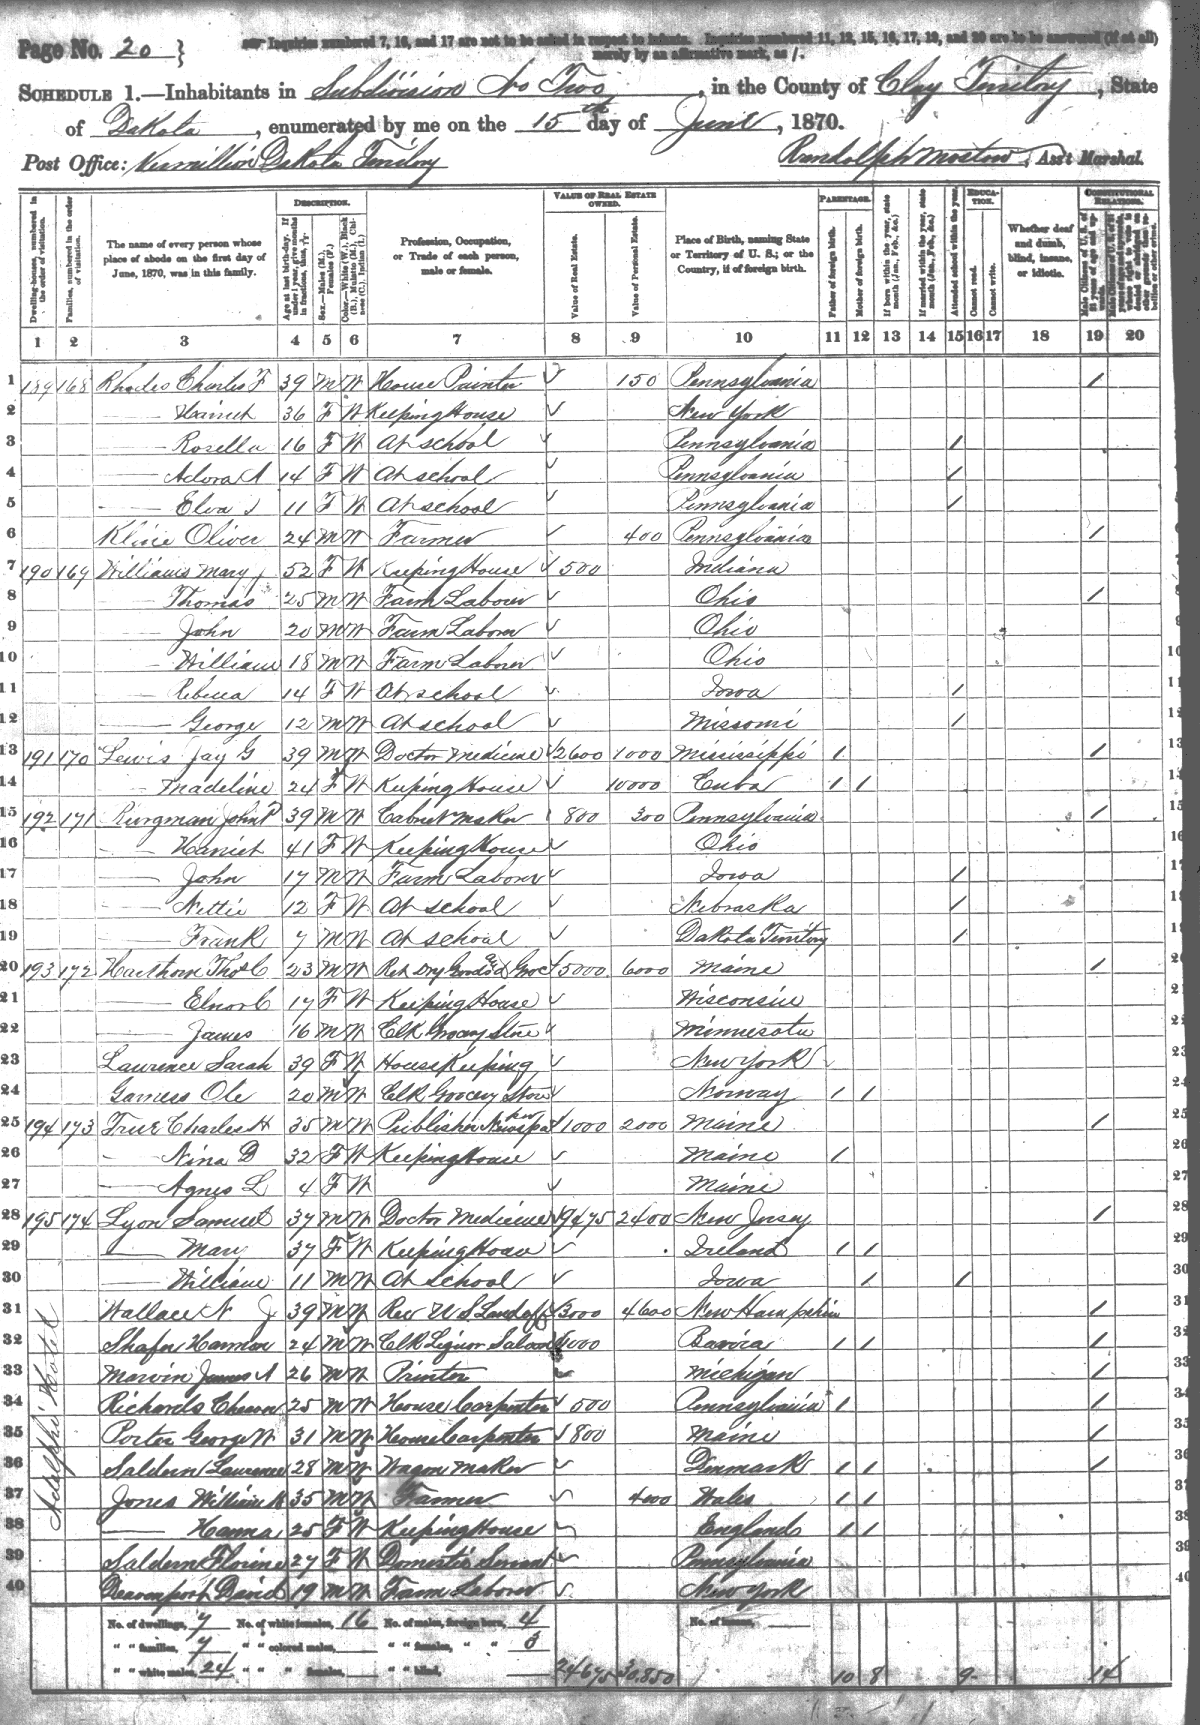 Page No. 20 }
Inquiries numbered 7, 16, and 17 are not to be asked in respect to infants. Inquiries numbered 11, 12, 15, 16, 17, 19, and 20 are to be answered (if at all)
merely by an affirmative mark, as /.
SCHEDULE 1.—Inhabitants in Subdivision No Two, in the County of Clay Territory, State
of Dakota, enumerated by me on the 15th day of June, 1870.
Post Office: Vermillion Dakota Territory Randolph Mostow, Ass't Marshal.
DESCRIPTION. VALUE OF REAL ESTATE OWNED. PARENTAGE. EDUCATION. CONSTITUTIONAL RELATIONS.
Dwelling-houses, numbered in the order of visitation.
Families, numbered in the order of visitation.
The name of every person whose place of abode on the first day of June, 1870, was in this family.
Age at last birth-day. If under 1 year, give months in fractions, thus, 3/12
Sex.—Males (M.), Females (F.)
Color.—White (W.), Black (B.), Mulatto (M.), Chinese (C.), Indian (I.)
Profession, Occupation, or Trade of each person, male or female.
Value of Real Estate.
Value of Personal Estate.
Place of Birth, naming State or Territory of U. S.; or the Country, if of foreign birth.
Father of foreign birth.
Mother of foreign birth.
If born within the year, state month (Jan., Feb., &c.)
If married within the year, state month (Jan., Feb., &c.)
Attended school within the year.
Cannot read.
Cannot write.
Whether deaf and dumb, blind, insane, or idiotic.
1 2 3 4 5 6 7 8 9 10 11 12 13 14 15 16 17 18 19 20
1 189 168 Rhodes Charles F 39 M W House Painter ✓ 150 Pennsylvania / 
2 — Harriet 36 F W Keeping House ✓ New York
3 — Rosella 16 F W At school ✓ Pennsylvania /
4 — Adora A 14 F W At school ✓ Pennsylvania /
5 — Elva J 11 F W At school ✓ Pennsylvania /
6 Kline Oliver 24 M W Farmer ✓ 400 Pennsylvania /
7 190 169 Williams Mary J 52 F W Keeping House ✓ 500 Indiana
8 — Thomas 25 M W Farm Laborer ✓ Ohio /
9 — John 20 M W Farm Laborer ✓ Ohio
10 — William 18 M W Farm Laborer ✓ Ohio
11 — Rebecca 14 F W At school ✓ Iowa /
12 — George 12 M W At school ✓ Missouri /
13 191 170 Lewis Jay G 39 M W Doctor Medicine ✓ 2600 1000 Mississippi / /
14 — Madeline 24 F W Keeping House ✓ 10000 Cuba / /
15 192 171 Burgman John P 39 M W Cabinet Maker 800 300 Pennsylvania /
16 — Harriet 41 F W Keeping House ✓ Ohio
17 — John 17 M W Farm Laborer ✓ Iowa /
18 — Nettie 12 F W At school ✓ Nebraska /
19 — Frank 7 M W At school ✓ Dakota Territory /
20 193 172 Hawthorn Thos C 23 M W Ret Dry Goods & Groc 5000 6000 Maine /
21 — Elnor C 17 F W Keeping House ✓ Wisconsin
22 — James 16 M W Clk Grocery Store ✓ Minnesota
23 Lawrence Sarah 39 F W House Keeping ✓ New York
24 Garness Ole 20 M W Clk Grocery Store ✓ Norway / /
25 194 173 True Charles H 35 M W Publisher Newspaper 1000 2000 Maine /
26 — Nina D 32 F W Keeping House ✓ Maine /
27 — Agnes L 4 F W ✓ Maine
28 195 174 Lyon Samuel 37 M W Doctor Medicine ✓ 9475 2400 New Jersey /
29 — Mary 37 F W Keeping House ✓ Ireland / /
30 — William 11 M W At school ✓ Iowa / /
31 Wallace N J 39 M W Rev U S Land off 3000 4600 New Hampshire /
32 Shafer Harmon 24 M W Clk Liquor Saloon 1000 Bavaria / / /
33 Marvin James A 26 M W Printer Michigan /
34 Richards 25 M W House Carpenter ✓ 500 Pennsylvania / /
35 Porter George W 31 M W House Carpenter ✓ 800 Maine /
36 Saldern Laurence 28 M W Wagon Maker ✓ Denmark / / /
37 Jones William 35 M W Farmer ✓ 400 Wales / /
38 — Hanna 25 F W Keeping House England / /
39 Saldern Florine 27 F W Domestic Servant ✓ Pennsylvania
40 Davenport David 19 M W Farm Laborer ✓ New York
Hotel
No. of dwellings, 7 No. of white females, 16 No. of males, foreign born, 4 No. of insane,
" " families, 7 " " colored males, " " females, " " 3
" " white males, 24 " " " females, " " blind, 24675 30,850 10 8 9 14